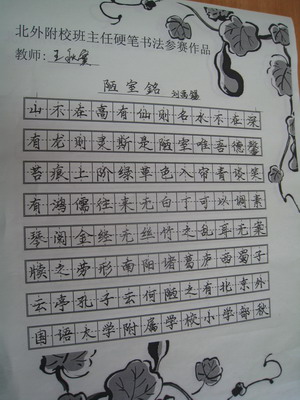 北外附校班主任硬笔书法参赛作品
教师:王
陋室銘 刘禹锡
山不在高有仙则名水不在深
有龙则灵斯是陋室唯吾德馨
苔痕上阶绿草色入帘青谈笑
有鸿儒往来无白丁可以调素
琴阅金经无丝竹之乱耳无案
牍之劳形南阳诸葛庐西蜀子
云亭孔子云何陋之有北京外
国语大学附属学校小学部秋